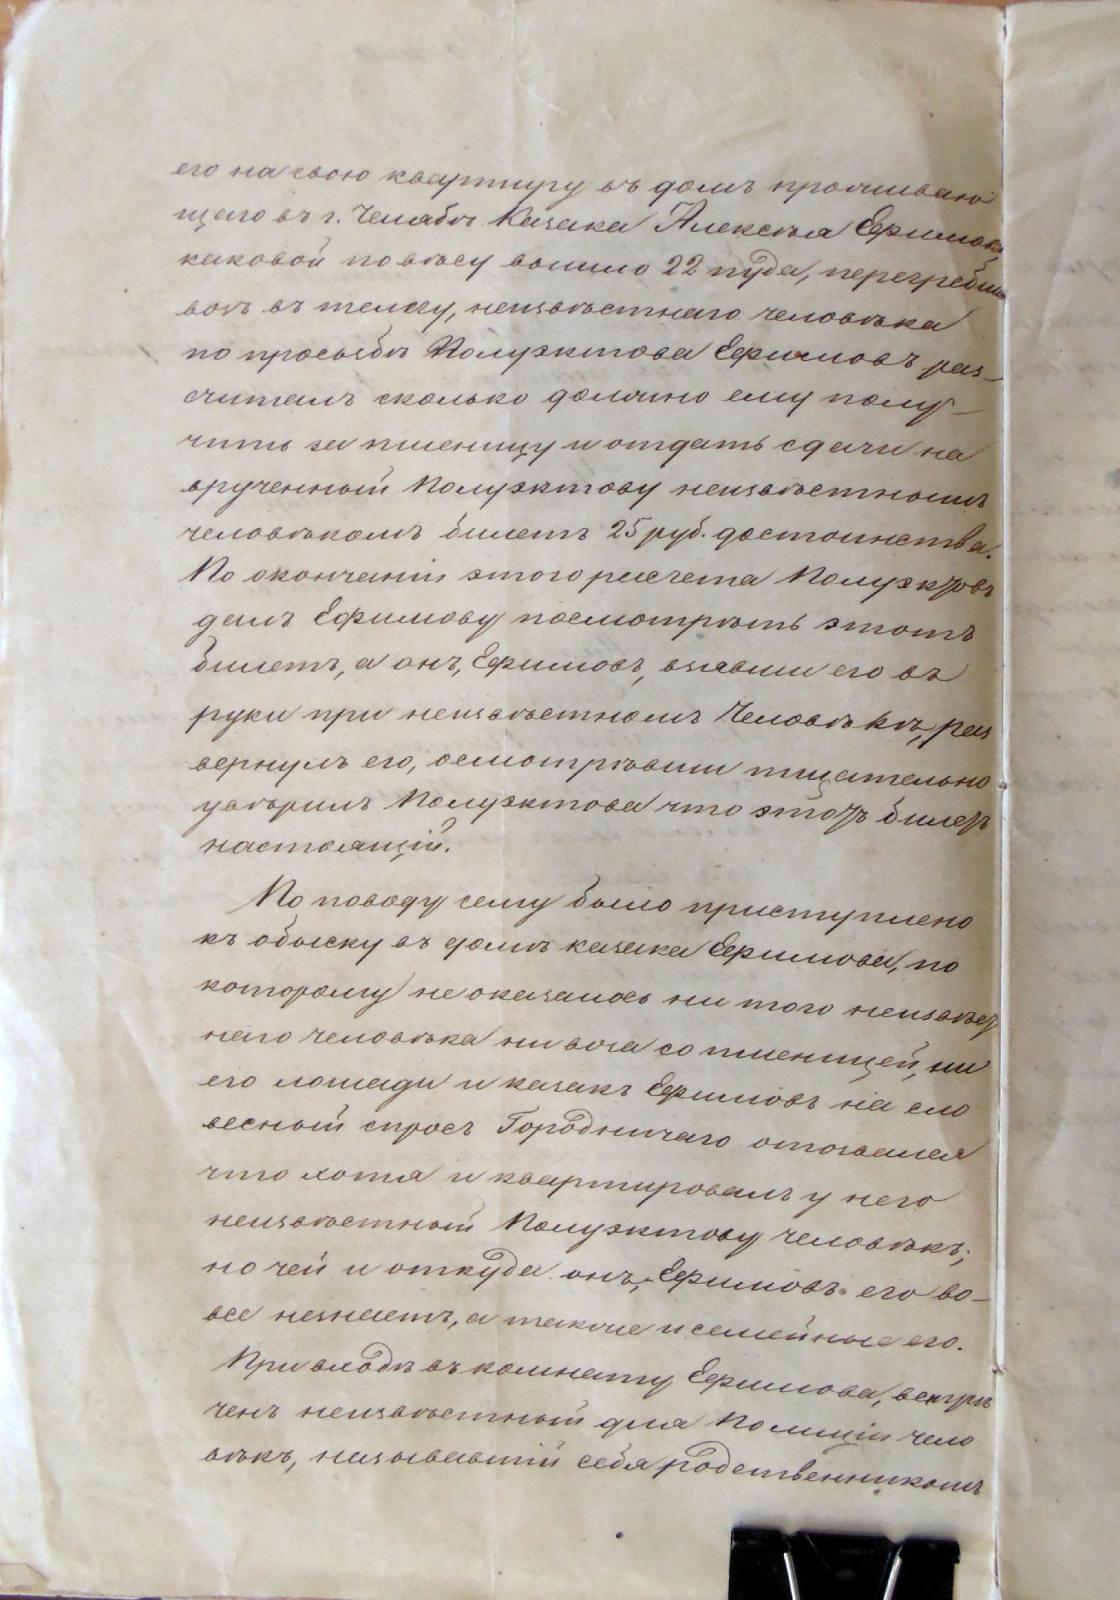 его на свою квартиру въ домъ проживаю
щаго въ г. Челябѣ Казака Алексѣя Ефимова,
каковой по вѣсу вышло 22 пуда, перегребши
возъ въ телегу, неизвѣстнаго человѣка
по просьбѣ Полуэктова Ефимовъ раз-
считалъ сколько должно ему полу-
чить за пшеницу и отдать сдачи на
врученный Полуэктову неизвѣстнымъ
человѣкомъ билетъ 25 руб. достоинства.
По окончаніи этого расчета Полуэктовъ
далъ Ефимову посмотрѣть этотъ
билетъ, а онъ, Ефимовъ, взявши его въ
руки при неизвѣстномъ человѣкѣ, раз
вернулъ его, осмотрѣвши тщательно
увѣрилъ Полуэктова что этотъ билетъ
настоящій.
По поводу сему было приступлено
къ обыску въ домѣ казака Ефимова, по
которому не оказалось ни того неизвѣст
наго человѣка ни воза со пшеницей, ни
его лошади и казакъ Ефимовъ на сло
весный спросъ Городничаго отозвался
что хотя и квартировалъ у него
неизвѣстный Полуэктову человѣкъ,
но чей и откуда онъ, Ефимовъ его во-
все незнаетъ, а также и семейные его.
При входѣ въ комнату Ефимова, встрѣ
ченъ неизвѣстный для Полиціи чело
вѣкъ, называвшій себя родственникомъ